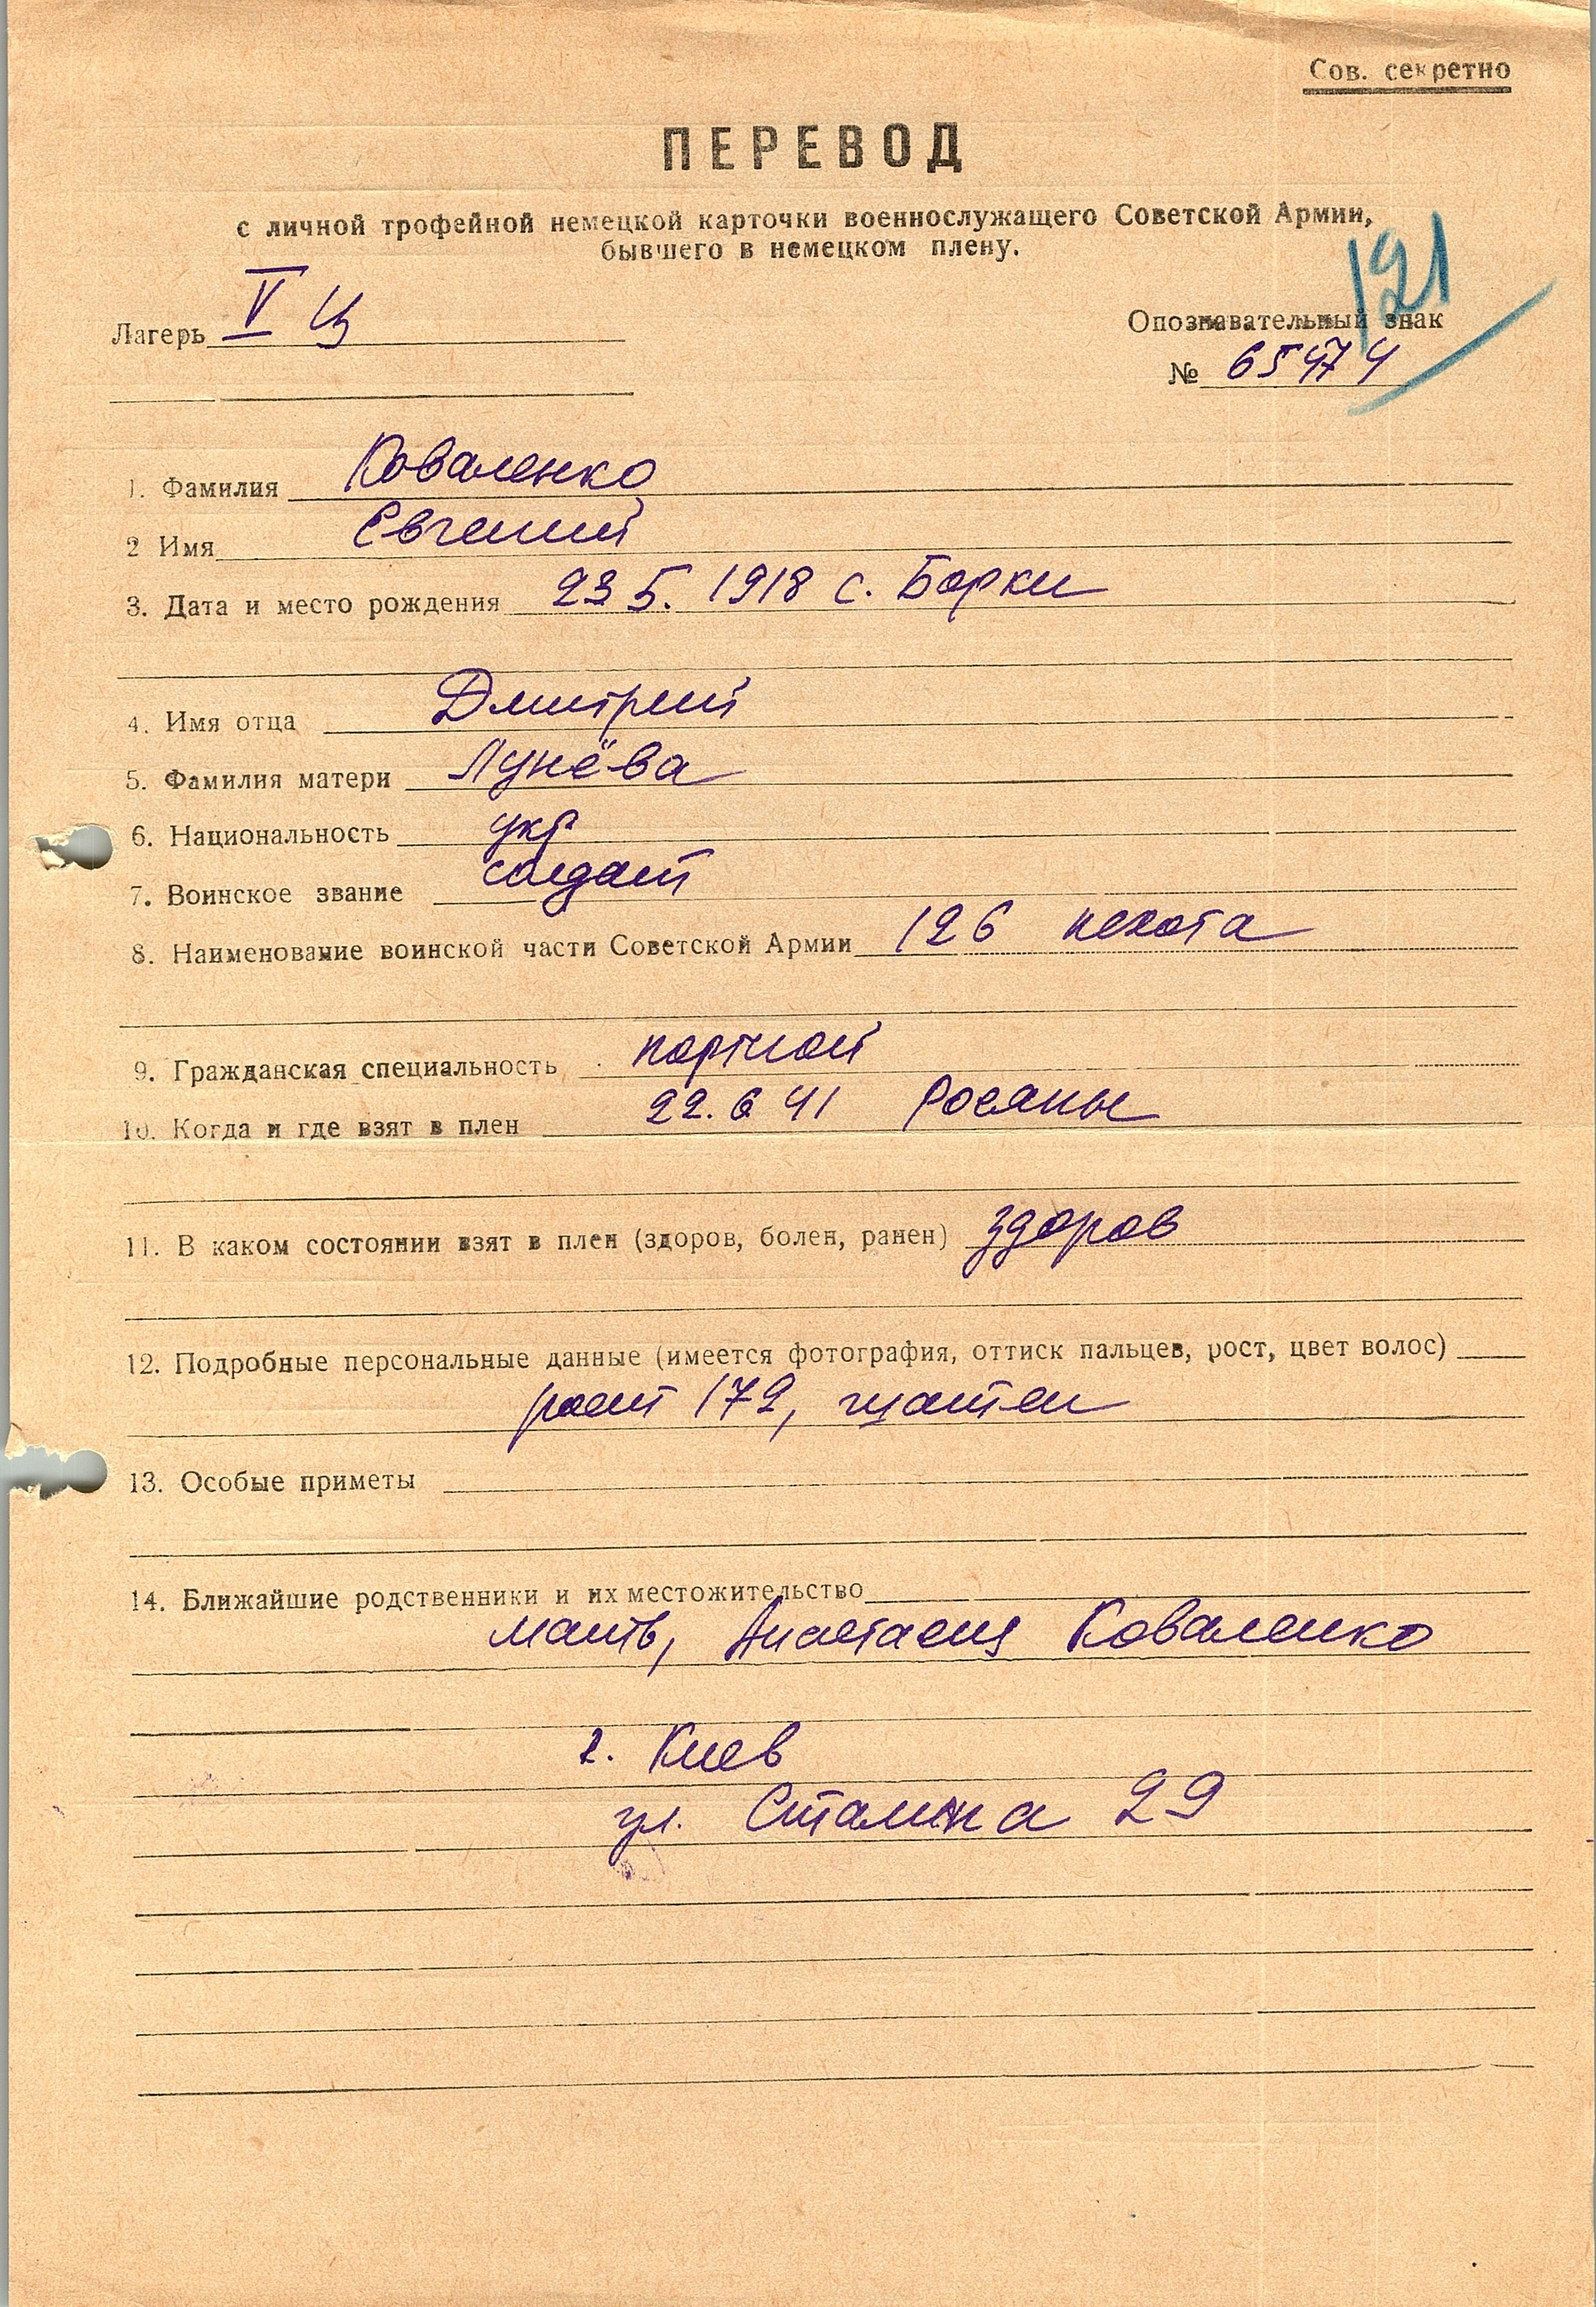 Сов. секретно
ПЕРЕВОД
с личной трофейной немецкой карточки военнослужащего Советской Армии,
бывшего в немецком плену.
121
Лагерь V Ц
Опознавательный знак
№ 65474
1. Фамилия Коваленко
2 Имя Евгений
3. Дата и место рождения 23 5. 1918 с. Борки
4. Имя отца Дмитрий
5. Фамилия матери Лунёва
6. Национальность укр
7. Воинское звание солдат
8. Наименование воинской части Советской Армии 126 пехота
9. Гражданская специальность портной
10. Когда и где взят в плен 22. 6 41 Росяны
11. В каком состоянии взят в плен (здоров, болен, ранен) здоров
12. Подробные персональные данные (имеется фотография, оттиск пальцев, рост, цвет волос)
рост 172, шатен
13. Особые приметы
14. Ближайшие родственники и их местожительство
мать, Анастасия Коваленко
г. Киев
ул. Сталина 29